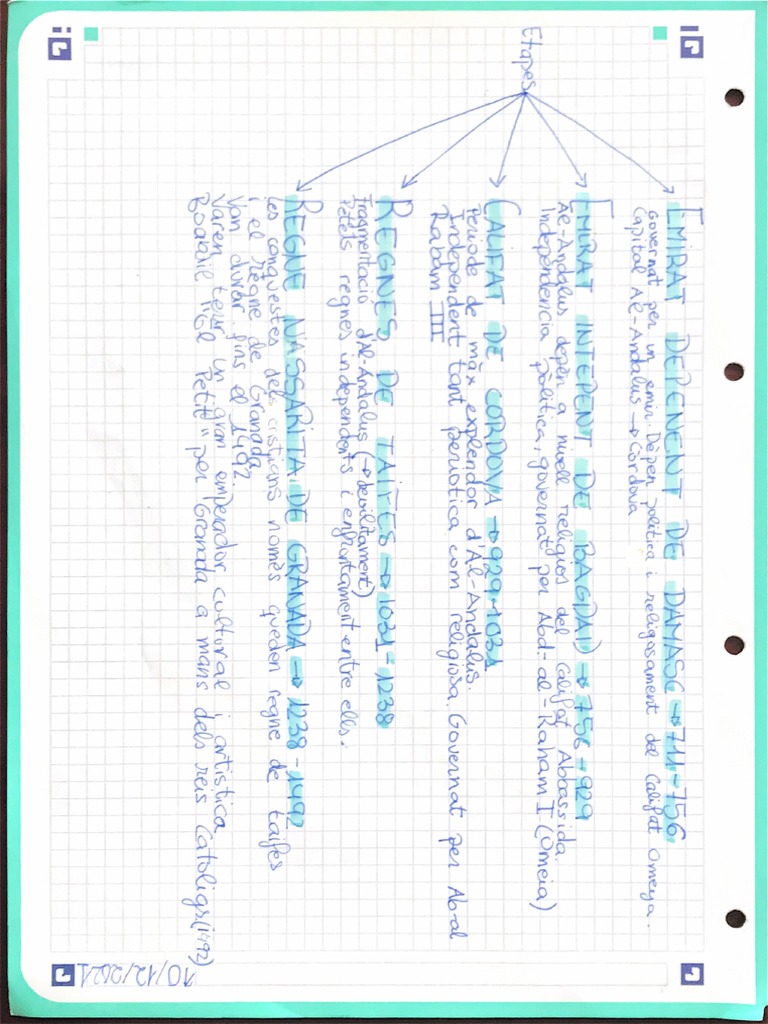 Etapes
EMIRAT DEPENENT DE DAMASC → 711-756
Governat per un emir. Depèn política i religosament del Califat Omeya.
Capital Al-Andalus → Còrdova
EMIRAT INTEPENT DE BAGDAD → 756-929
Al-Andalus depèn a nivell religios del Califat Abbassida.
Independencia política, governat per Abd-al-Raham I (Omeia)
CALIFAT DE CORDOVA → 929-1031
Període de màx explendor d'Al-Andalus.
Independent tant periotica com religiosa. Governat per Ab-al
Rabam III
REGNES DE TAIFES → 1031-1238
Fragmentació d'Al-Andalus (→ devilitament)
Petets regnes independents i enfrontament entre ells.
REGNE NASSARITA DE GRANADA → 1238-1492
Les conquestes dels cristians només queden regne de taifes
i el Regne de Granada.
Van durar fins el 1492.
Varen tenir un gran emperador cultural i artistica
Boabdil "El Petit" per Granada a mans dels reis Catoligs (1492)
10/12/2021